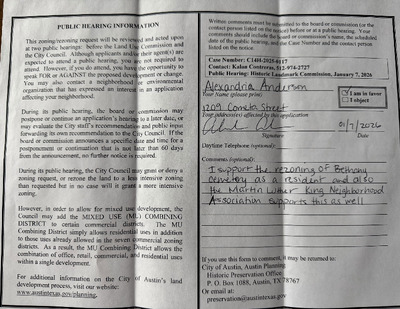 PUBLIC HEARING INFORMATION
This zoning/rezoning request will be reviewed and acted upon
at two public hearings: before the Land Use Commission and
the City Council. Although applicants and/or their agent(s) are
expected to attend a public hearing, you are not required to
attend. However, if you do attend, you have the opportunity to
speak FOR or AGAINST the proposed development or change.
You may also contact a neighborhood or environmental
organization that has expressed an interest in an application
affecting your neighborhood.
During its public hearing, the board or commission may
postpone or continue an application's hearing to a later date, or
may evaluate the City staff's recommendation and public input
forwarding its own recommendation to the City Council. If the
board or commission announces a specific date and time for a
postponement or continuation that is not later than 60 days
from the announcement, no further notice is required.
During its public hearing, the City Council may grant or deny a
zoning request, or rezone the land to a less intensive zoning
than requested but in no case will it grant a more intensive
zoning.
However, in order to allow for mixed use development, the
Council may add the MIXED USE (MU) COMBINING
DISTRICT to certain commercial districts. The MU
Combining District simply allows residential uses in addition
to those uses already allowed in the seven commercial zoning
districts. As a result, the MU Combining District allows the
combination of office, retail, commercial, and residential uses
within a single development.
For additional information on the City of Austin's land
development process, visit our website:
www.austintexas.gov/planning.
Written comments must be submitted to the board or commission (or the
contact person listed on the notice) before or at a public hearing. Your
comments should include the board or commission's name, the scheduled
date of the public hearing, and the Case Number and the contact person
listed on the notice.
Case Number: C14H-2025-0117
Contact: Kalan Contreras, 512-974-2727
Public Hearing: Historic Landmark Commission, January 7, 2026
Alexandria Anderson
Your Name (please print)
I am in favor
I object
1209 Cometa Street
Your address(es) affected by this application
01/7/2026
Signature
Date
Daytime Telephone (optional):
Comments (optional):
I support the rezoning of Bethany
Cemetery as a resident and also
the Martin Luther King Neighborhood
Association supports this as well
If you use this form to comment, it may be returned to:
City of Austin, Austin Planning
Historic Preservation Office
P. O. Box 1088, Austin, TX 78767
Or email at:
preservation@austintexas.gov